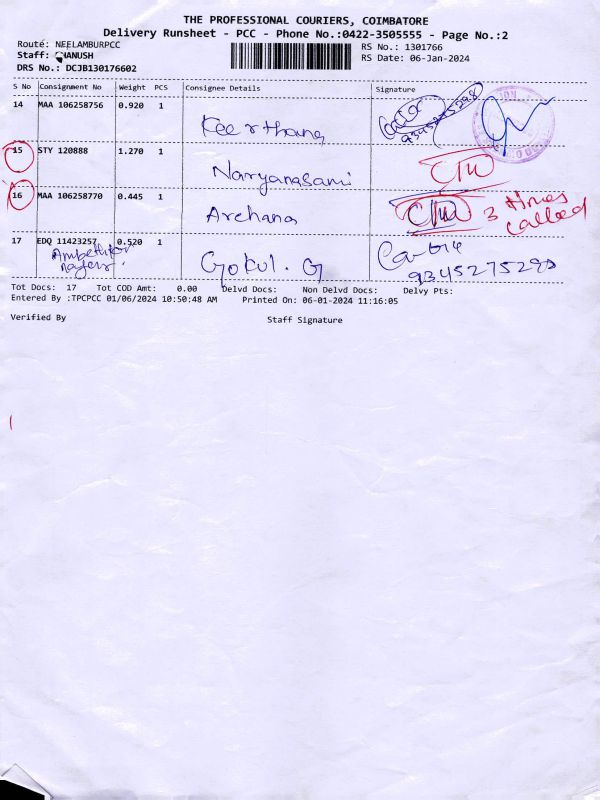 THE PROFESSIONAL COURIERS, COIMBATORE
Delivery Runsheet - PCC - Phone No.:0422-3505555 - Page No.:2
Route: NEELAMBURPCC
RS No.: 1301766
Staff: HANUSH
RS Date: 06-Jan-2024
DRS No.: DCJB130176602
S No Consignment No Weight PCS Consignee Details Signature
14 MAA 106258756 0.920 1 Keerthana
15 STY 120888 1.270 1 Naryanasami
16 MAA 106258770 0.445 1 Archana 3 times called
17 EDQ 11423257 0.520 1 Gokul. G
Tot Docs: 17 Tot COD Amt: 0.00 Delvd Docs: Non Delvd Docs: Delvy Pts:
Entered By :TPCPCC 01/06/2024 10:50:48 AM Printed On: 06-01-2024 11:16:05
Verified By Staff Signature